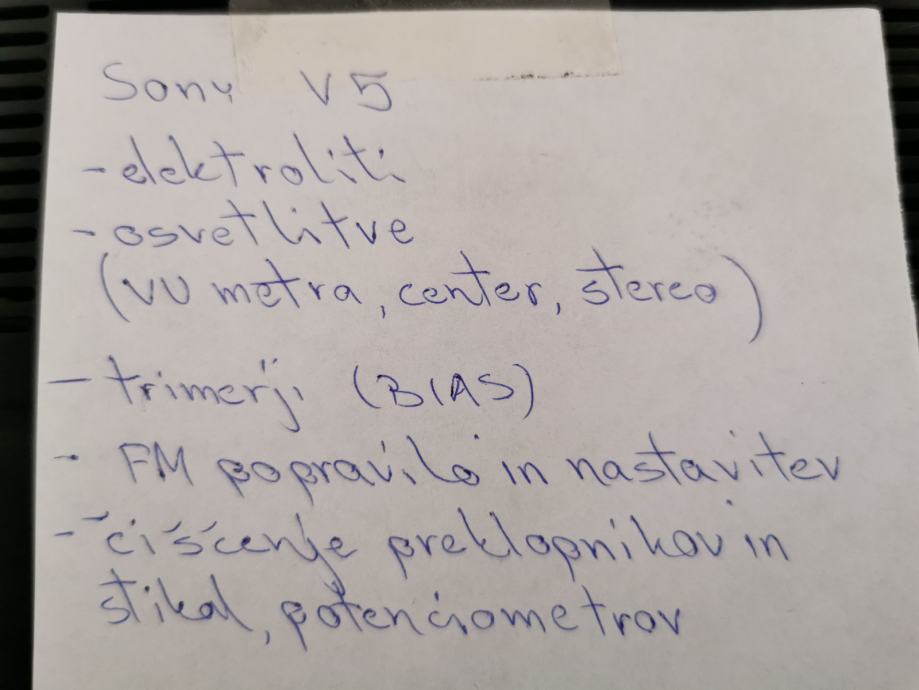 Sony V5
- elektroliti
- osvetlitve
(VU metra, center, stereo)
- trimerji (BIAS)
- FM popravilo in nastavitev
- čiščenje preklopnikov in
stikal, potenciometrov